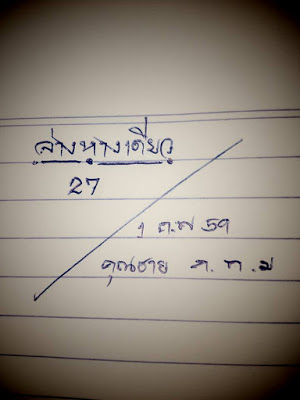 ล่างทางเดียว
27
1 ต.ค 59
คุณชาย ก.ท.ม